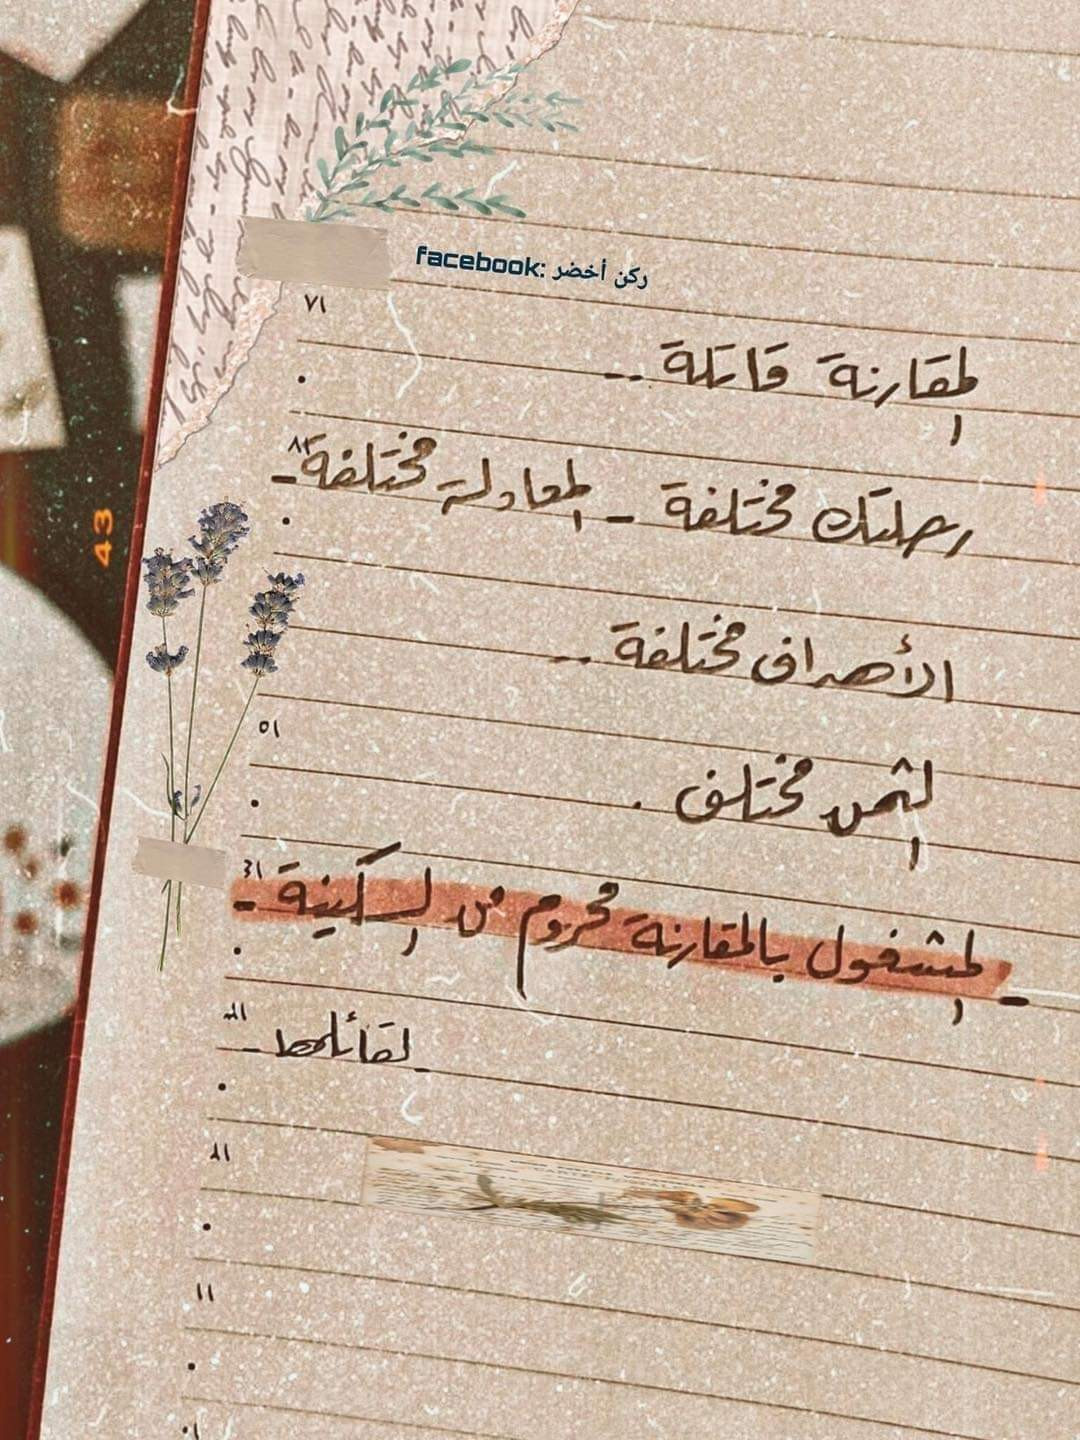 facebook: ركن أخضر
المقارنة قاتلة ..
رحلتك مختلفة - المعادلة مختلفة -
الأهداف مختلفة ..
الثمن مختلف .
- المشغول بالمقارنة محروم من السكينة -
- لقائلها -
43